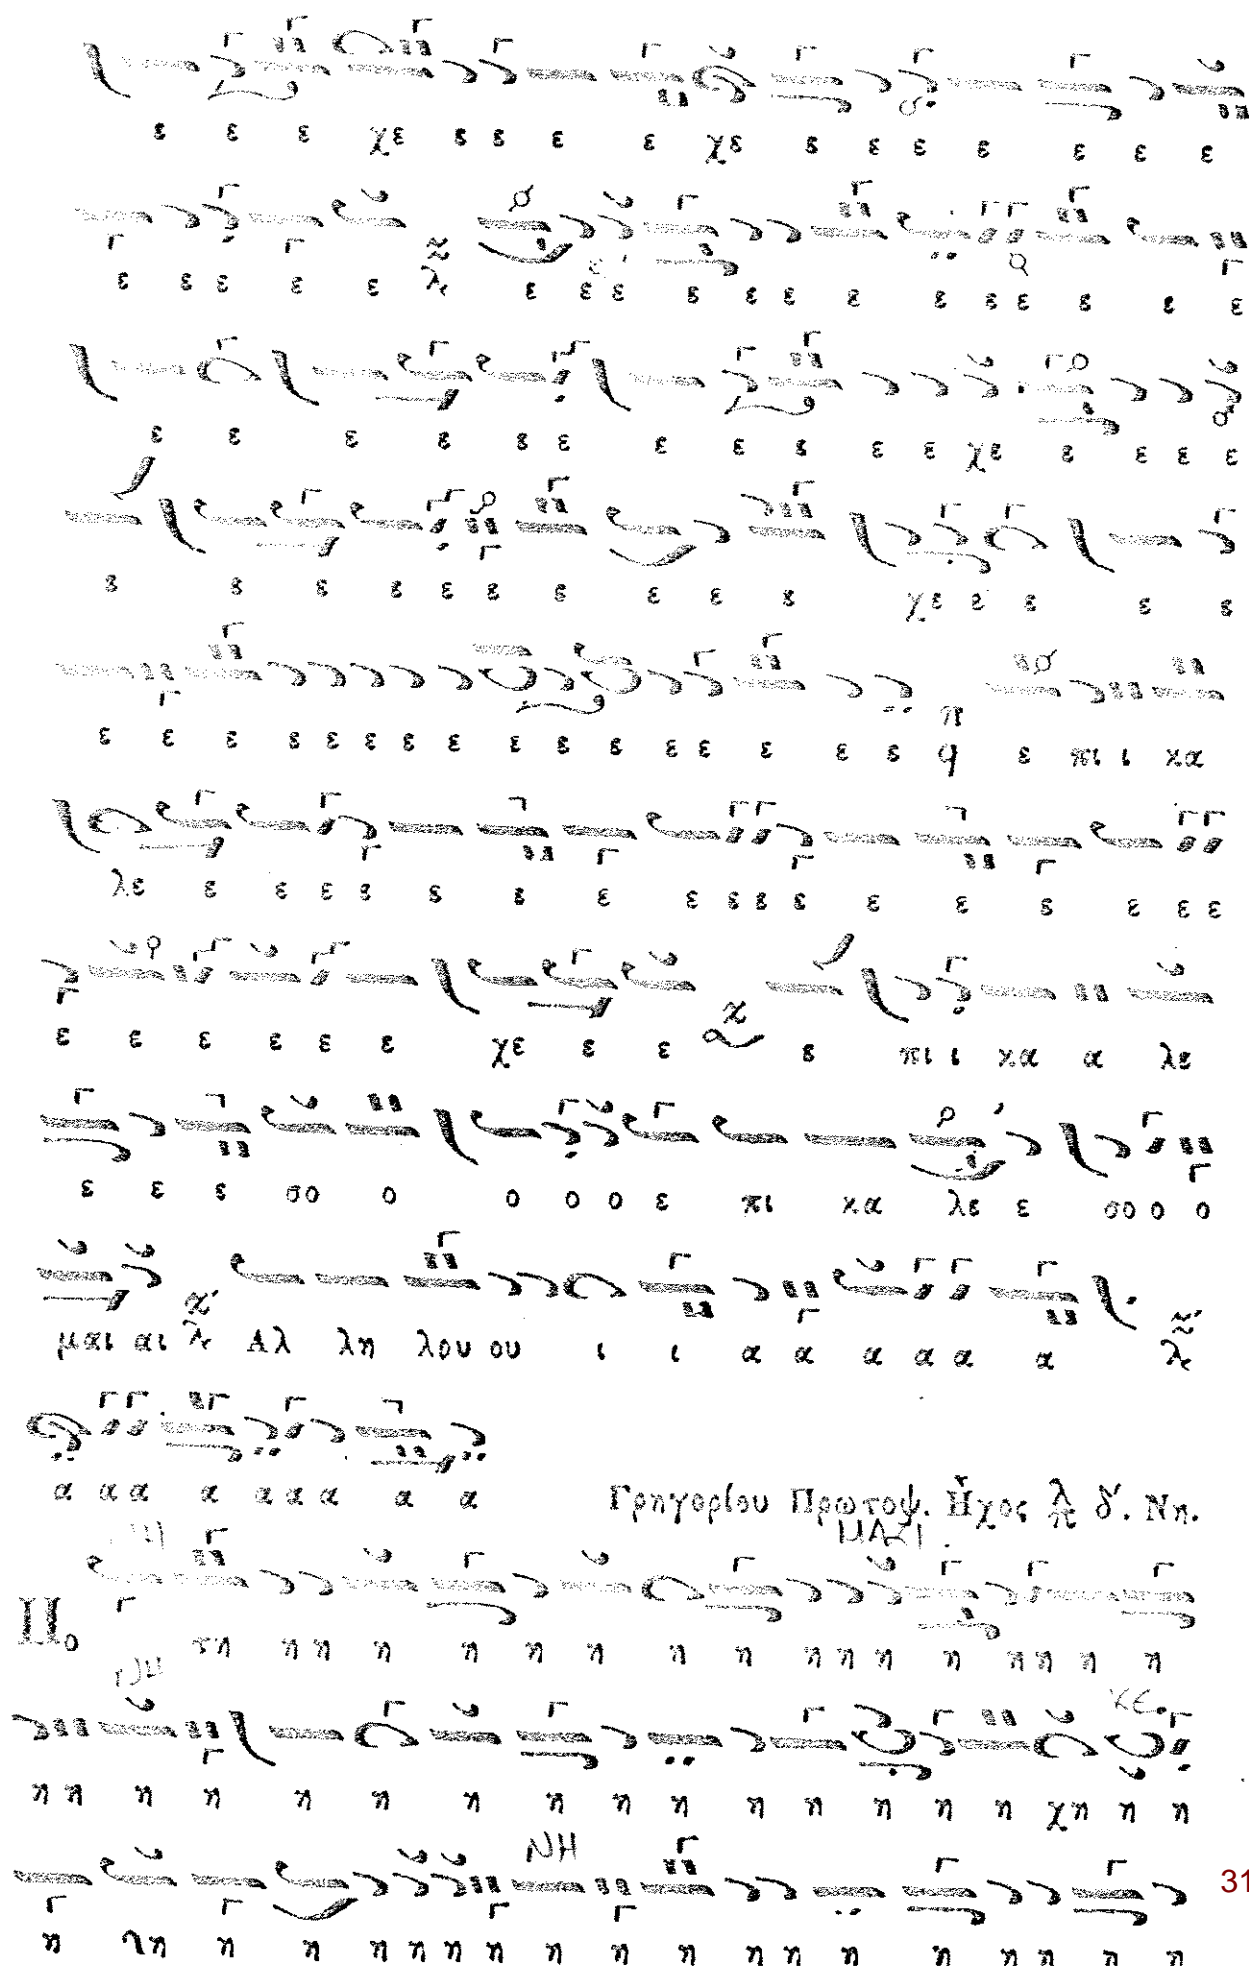 ε ε ε χε ε ε ε ε χε ε ε ε ε ε ε ε
ε ε ε ε ε λ ε ε ε ε ε ε ε ε ε ε ε ε ε
ε ε ε ε ε ε ε ε ε ε ε χε ε ε ε ε
ε ε ε ε ε ε ε ε ε ε χε ε ε ε ε
ε ε ε ε ε ε ε ε ε ε ε ε ε ε ε ε π q ε πι ι κα
λε ε ε ε ε ε ε ε ε ε ε ε ε ε ε ε ε ε
ε ε ε ε ε ε χε ε ε ε πι ι κα α λε
ε ε ε σο ο ο ο ο ε πι κα λε ε σο ο ο
μαι αι Αλ λη λου ου ι ι α α α α α α
α α α α α α α α α
Γρηγορίου Πρωτοψ. Ἦχος λ π δ'. Νη.
ΜΑΖΙ
Πο τη η η η η η η η η η η η η η η η η
ΚΕ
η η η η η η η η η η η η η η χη η η
ΝΗ
η η η η η η η η η η η η η η η η η
31